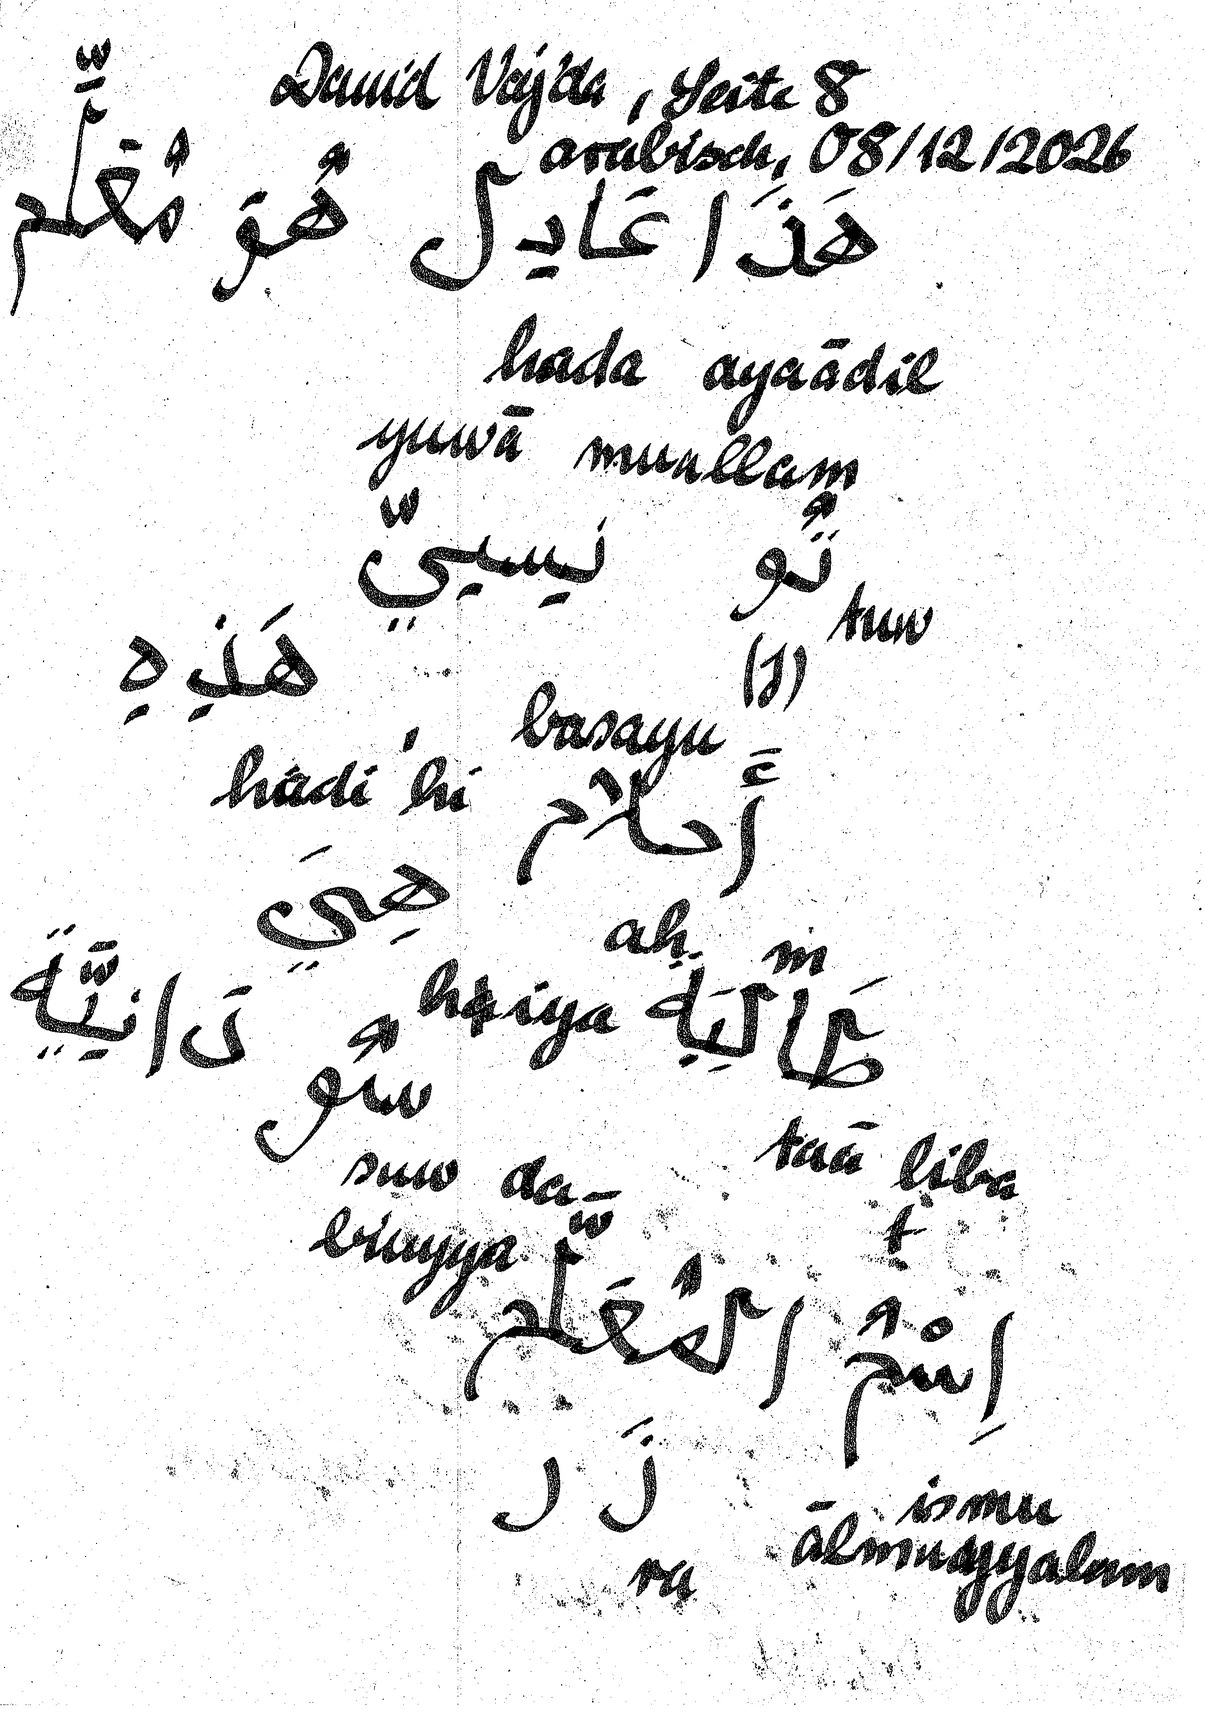 David Vajda, Seite 8
arabisch, 08/12/2026
هَذَا عَادِل هُوَ مُعَلِّم
hada ayaādil
yuwā muallam
تُو
tuw
(1)
basayu
هَذِهِ
hādi hi
أَحلام
ah. m
هِيَ
hiya
طَالِبَة
taā liba
t
سُو
suw da
binyya
اِسْمُ المُعَلِّم
ismu
ālmuayyalam
زَ ر
ra